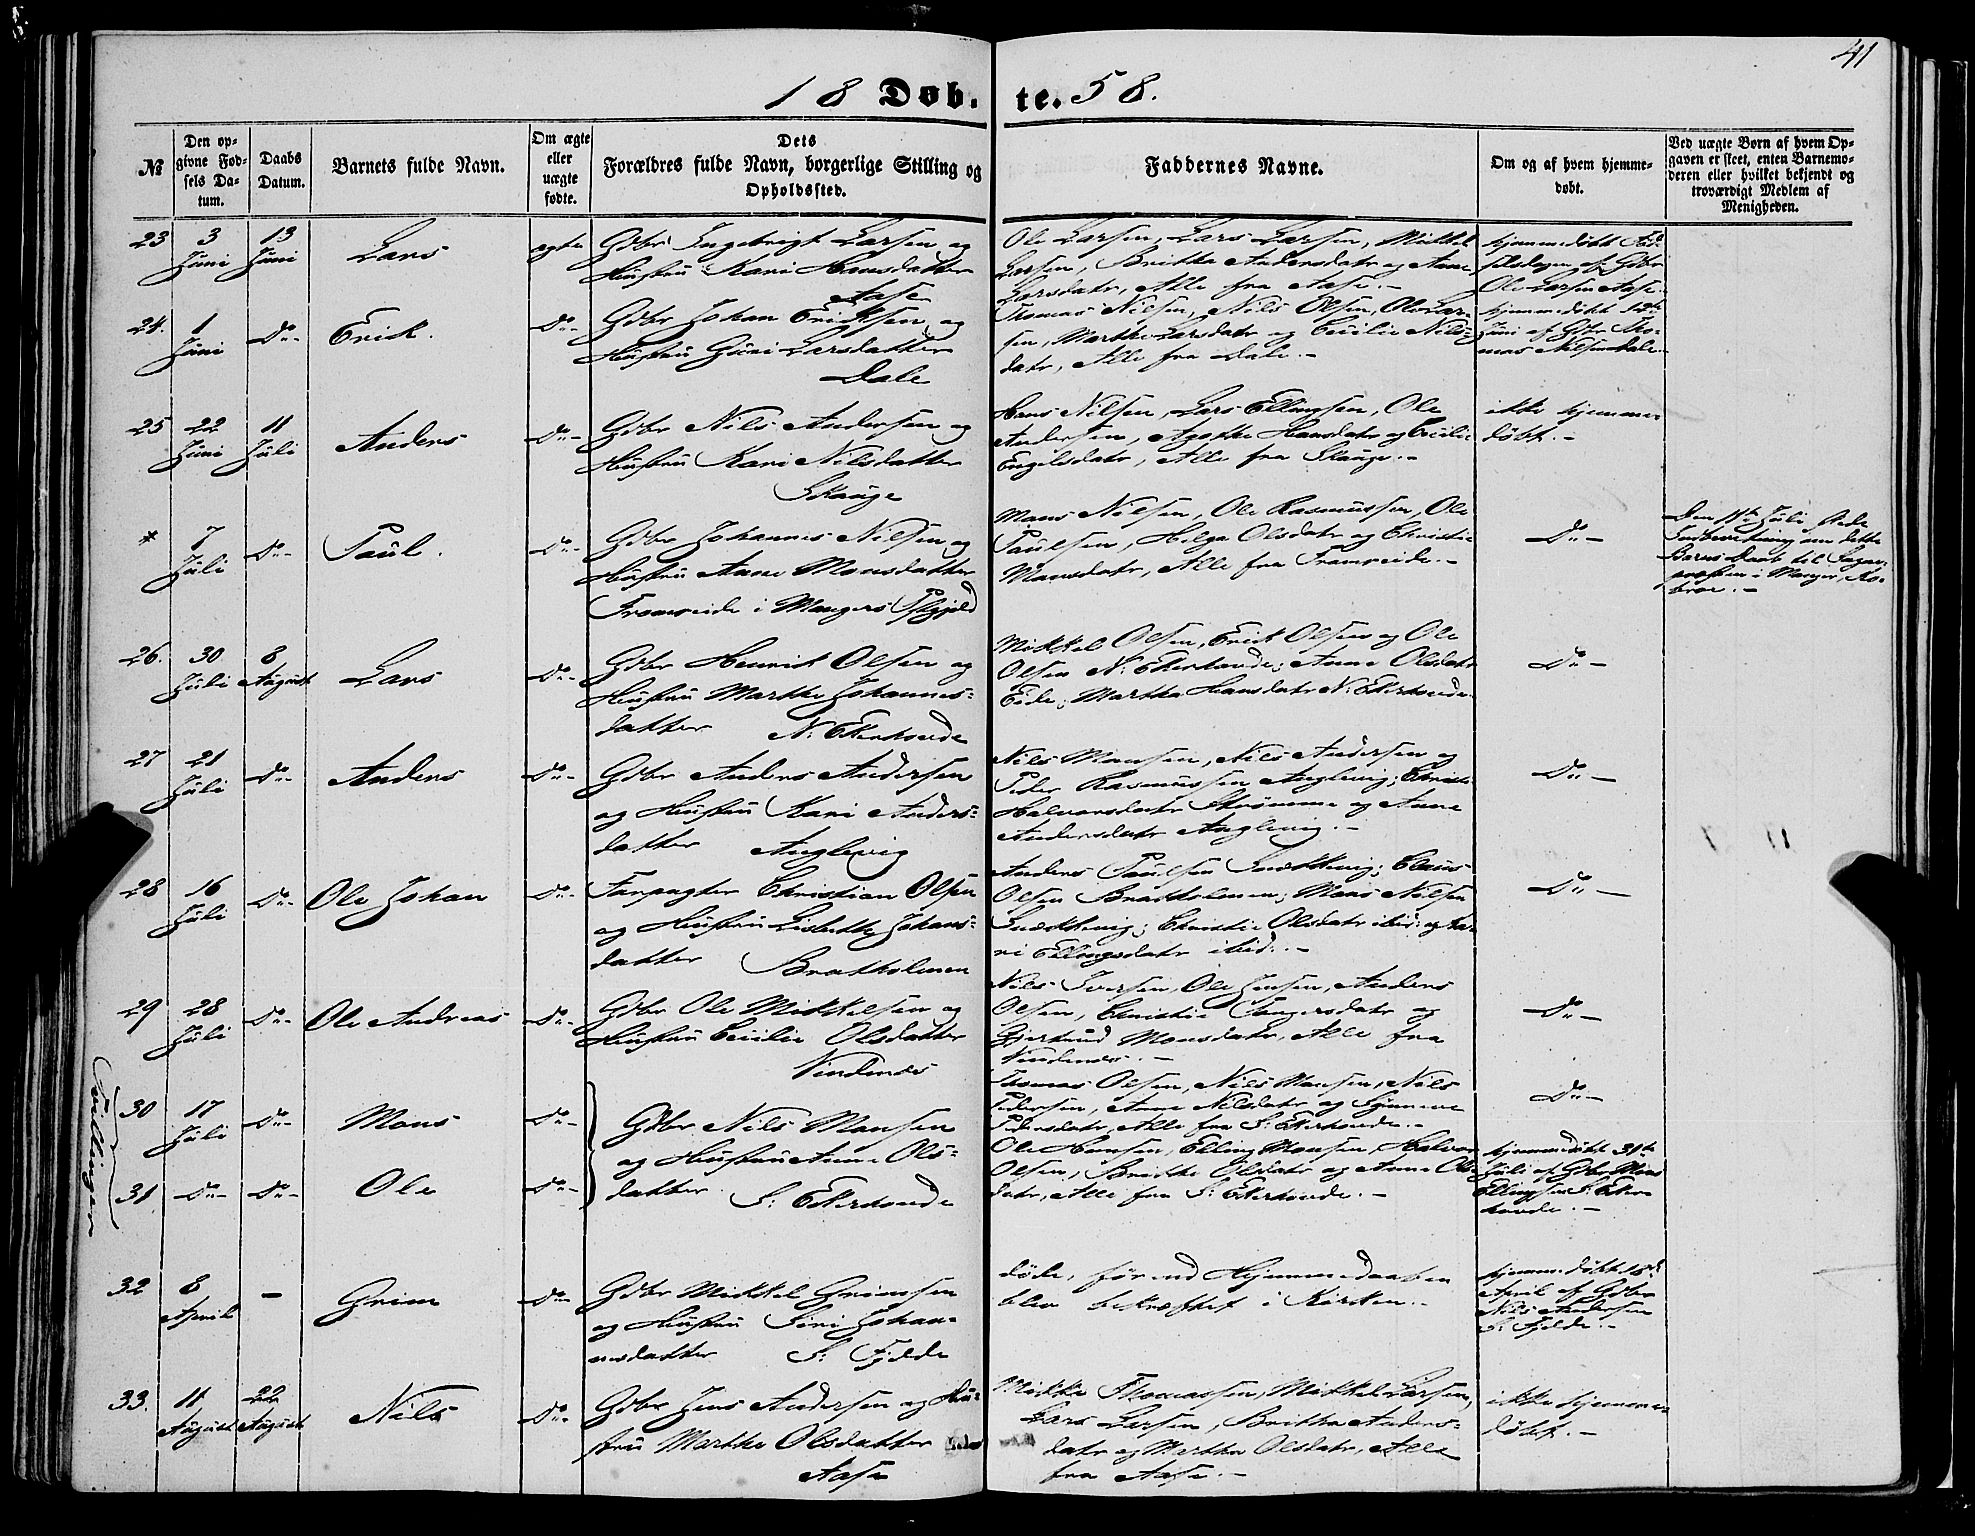 41
18 Døb- te. 58.
№
Den opgivne Fødsels Datum.
Daabs Datum.
Barnets fulde Navn.
Om ægte eller uægte fødte.
Dets Forældres fulde Navn, borgerlige Stilling og Opholdssted.
Faddernes Navne.
Om og af hvem hjemmedøbt.
Ved uægte Børn af hvem Opgaven er skeet, enten Barnemoderen eller hvilket bekjendt og troværdigt Medlem af Menigheden.
23 3 Juni 13 Juni Lars ægte Gdbr Ingebrigt Larsen og
Hustru Kari Hansdatter
Aase
Ole Larsen, Lars Larsen, Mikkel
Larsen, Britha Andersdatr og Anne
Larsdatr, Alle fra Aase.-
hjemmedøbt Fød-
selsdagen af Gdbr
Ole Larsen Aase.
24. 1 Juni Do- Erick. Do- Gdbr Johan Ericksen og
Hustru Guri Larsdatter
Dale
Thomas Nilsen, Nils Olsen, Ole Lar-
sen, Marthe Larsdatr og Cecilie Nils-
datr, Alle fra Dale.-
hjemmedøbt 12te
Juni af Gdbr Tho-
mas Nilsen Dale.
25 22 Juni 11 Juli Anders Do- Gdbr Nils Andersen og
Hustru Kari Nilsdatter
Skauge
Hans Nilsen, Lars Ellingsen, Ole
Andersen, Agathe Hansdatr og Cecilie
Engelsdatr, Alle fra Skauge.-
ikke hjemme-
døbt.-
* 7 Juli Do- Paul. Do- Gdbr Johannes Nilsen og
Hustru Anne Monsdatter
Framreide i Mangers Pstgjeld
Mons Nilsen, Ole Rasmussen, Ole
Paulsen, Helga Olsdatr og Christie
Monsdatr, Alle fra Framreide.-
Do-
Den 11te Juli skede
Indberetning om dette
Barns Daab til Sogne-
præsten i Manger,
26. 30 Juli 8 August Lars Do- Gdbr Henrick Olsen og
Hustru Marthe Johannes-
datter N: Ekerhovde
Mikkel Olsen, Erick Olsen og Ole
Olsen N: Ekerhovde; Anne Olsdatr
Eide; Martha Hansdatr N: Ekerhovde
Do-
27 21 Juli Do- Anders Do- Gdbr Anders Andersen
og Hustru Kari Anders-
datter Anglevig
Nils Monsen, Nils Andersen og
Peder Rasmussen Anglevig; Christi
Halvorsdatr Strømme og Anne
Andersdatr Anglevig.-
Do-
28 16 Juli Do- Ole Johan Do- Forpagter Christian Olsen
og Hustru Lisbeth Johans-
datter Bratholmen
Anders Paulsen Snekkevig; Claus
Olsen Bratholmen; Mons Nilsen
Snekkevig; Christie Olsdatr ibid: og Ka-
ri Ellingsdatr ibid:.-
Do-
29 28 Juli Do- Ole Andreas Do- Gdbr Ole Mikkelsen og
Hustru Cecilie Olsdatter
Vindenes
Nils Iversen, Ole Jensen, Anders
Olsen, Christie Tangersdatr og
Gjertrud Monsdatr, Alle fra
Vindenes.-
Do-
Tvillinger
30 17 Juli Do- Mons Do- Gdbr Nils Monsen
og Hustru Anne Ols-
datter. S: Ekerhovde
Thomas Olsen, Nils Monsen, Nils
Pedersen, Anne Nilsdatr og Synneve
Pedersdatr, Alle fra S: Ekerhovde.-
Do-
31. Do- Do- Ole Do-
Ole Hansen, Elling Monsen, Halvor
Olsen, Brithe Olsdatr og Anne Ols-
datr, Alle fra S: Ekerhovde.-
hjemmedøbt 31te
Juli af Gdbr Mons
Ellingsen S: Eker-
hovde.-
32 8 April - Grim Do- Gdbr Mikkel Grimsen
og Hustru Siri Johan-
nesdatter S: Fjelde
døde, førend Hjemmedaaben
blev bekræftet i Kirken.-
hjemmedøbt
April af Gdbr
Nils Andersen
S: Fjelde.-
33. 11 August 22 August Nils Do- Gdbr Jens Andersen og Hu-
stru Marthe Olsdatter
Aase
Mikke Thomassen, Mikkel Larsen,
Lars Larsen, Britha Anders-
datr og Martha Olsdatr, Alle
fra Aase.-
ikke hjemme-
døbt.-